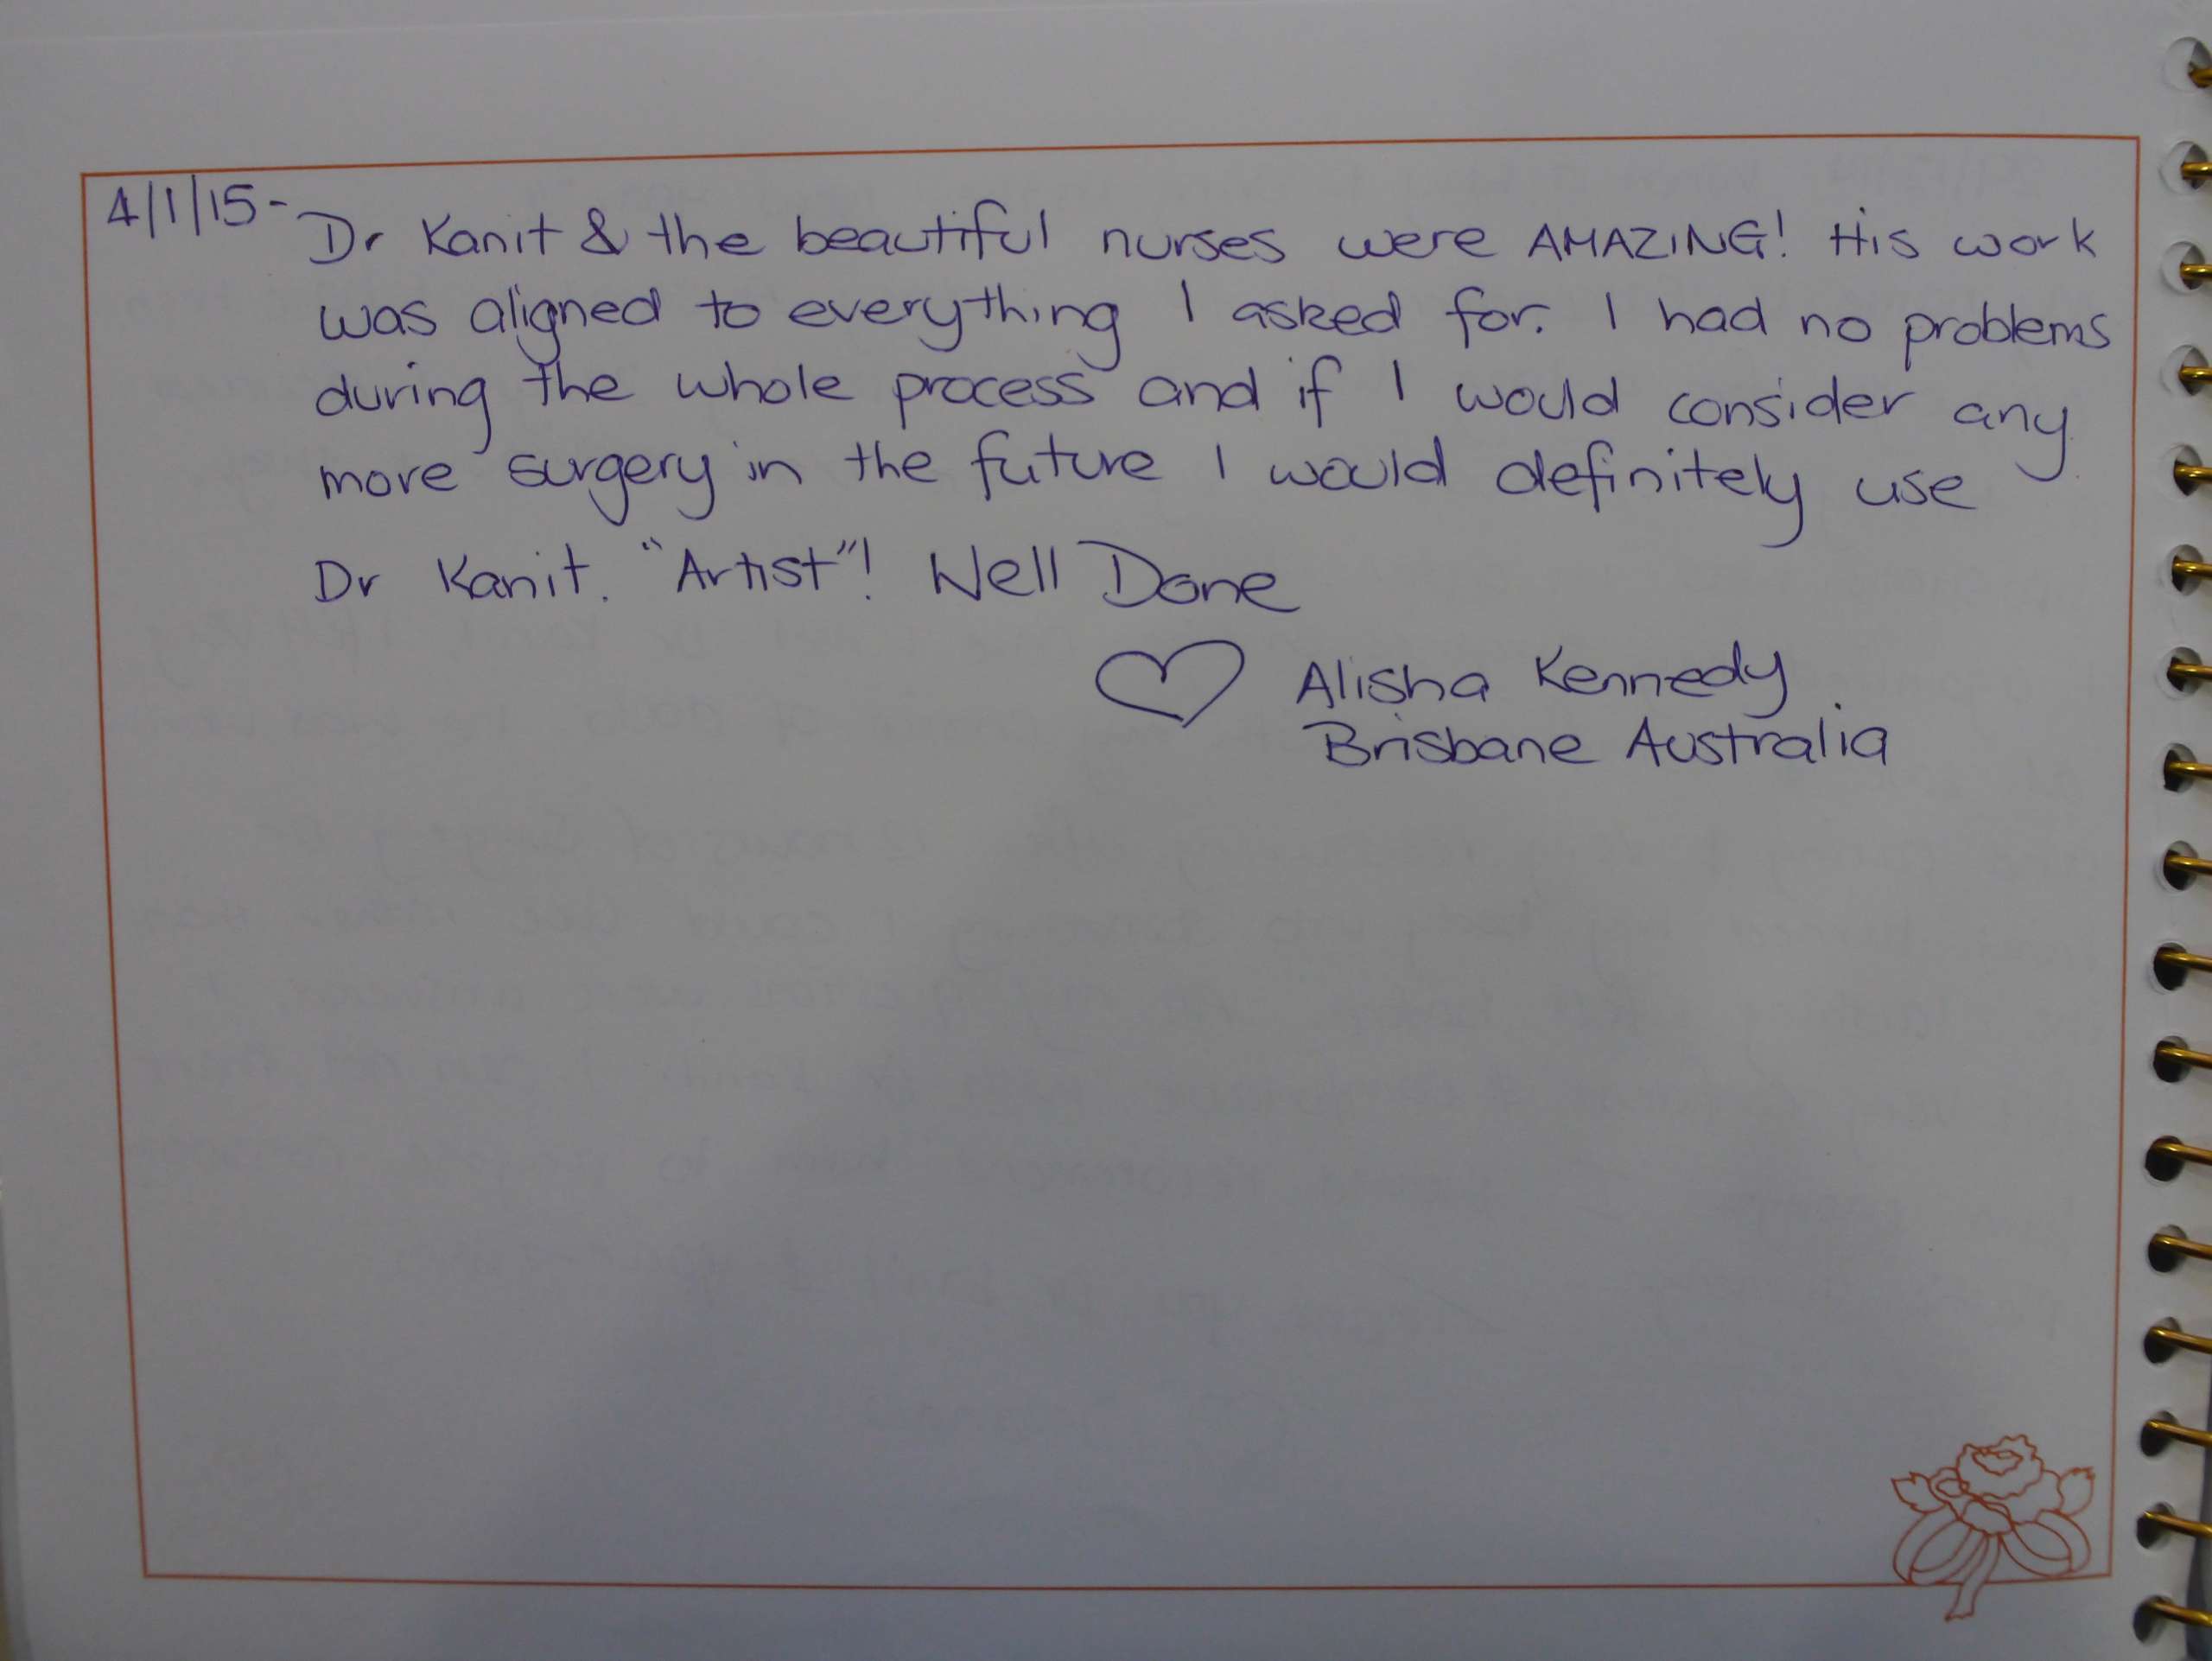 4/1/15- Dr Kanit & the beautiful nurses were AMAZING! His work
was aligned to everything I asked for. I had no problems
during the whole process and if I would consider any
more surgery in the future I would definitely use
Dr Kanit. "Artist"! Well Done
Alisha Kennedy
Brisbane Australia